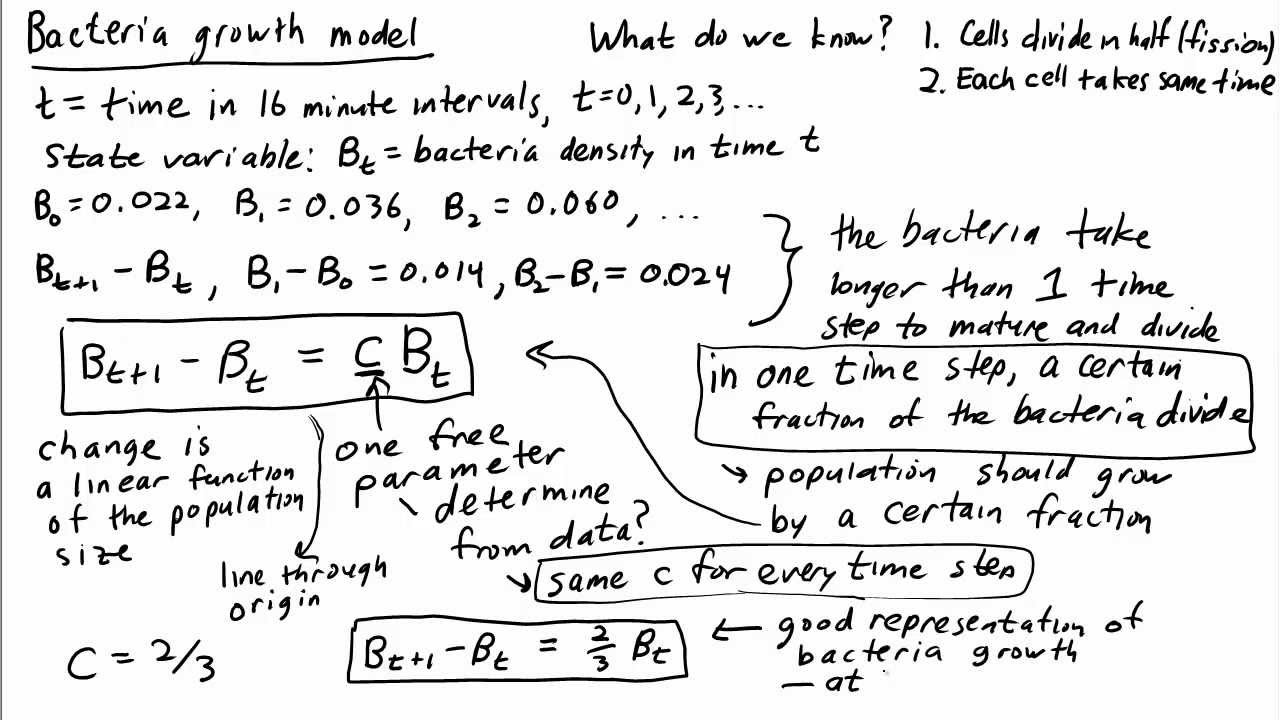 Bacteria growth model
What do we know? 1. Cells divide in half (fission)
2. Each cell takes same time
t = time in 16 minute intervals, t=0, 1, 2, 3, ...
State variable: Bₜ = bacteria density in time t
B₀ = 0.022, B₁ = 0.036, B₂ = 0.060, ...
Bₜ₊₁ - Bₜ, B₁ - B₀ = 0.014, B₂ - B₁ = 0.024
the bacteria take
longer than 1 time
step to mature and divide
Bₜ₊₁ - Bₜ = c Bₜ
in one time step, a certain
fraction of the bacteria divide
population should grow
by a certain fraction
change is
a linear function
of the population
size
line through
origin
one free
parameter
determine
from data?
same c for every time step
C = 2/3
Bₜ₊₁ - Bₜ = 2/3 Bₜ
good representation of
bacteria growth
- at